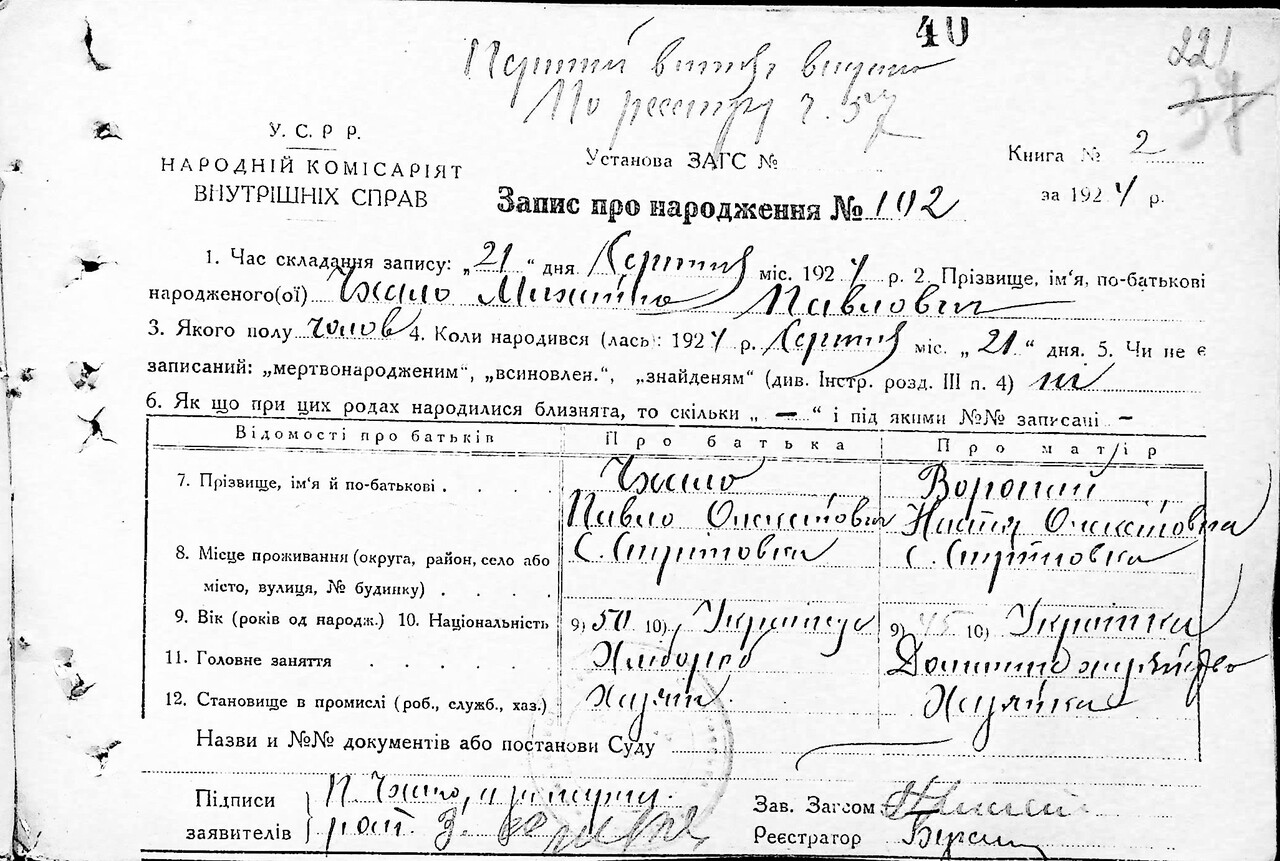 40
221
37
Перший витяг видано
По реєстру ч. 57
У. С. Р. Р.
НАРОДНІЙ КОМІСАРІЯТ
ВНУТРІШНІХ СПРАВ
Установа ЗАГС №
Книга № 2
за 1924 р.
Запис про народження № 102
1. Час складання запису: „21“ дня Серпня міс. 1924 р. 2. Прізвище, ім‘я, по-батькові
народженого(ої) Михайло Павлович
3. Якого полу чолов 4. Коли народився (лась): 1924 р. Серпня міс. „21“ дня. 5. Чи не є
записаний: „мертвонародженим“, „всиновлен.“, „знайденям“ (див. Інстр. розд. III п. 4) ні
6. Як що при цих родах народилися близнята, то скільки „ — “ і під якими №№ записані –
Відомості про батьків Про батька Про матір
7. Прізвище, ім‘я й по-батькові . . . . Воропай
Павло Олексійович Настя Олексіївна
8. Місце проживання (округа, район, село або С. С.
місто, вулиця, № будинку) . . . .
9. Вік (років од народж.) 10. Національність 9) 50 10) Українець 9) 45 10) Українка
11. Головне заняття . . . . . Хлібороб Домашнє
12. Становище в промислі (роб., служб., хаз.) Хазяїн Хазяйка
Назви и №№ документів або постанови Суду
Підписи П.
заявителів
Зав. Загсом
Реєстратор